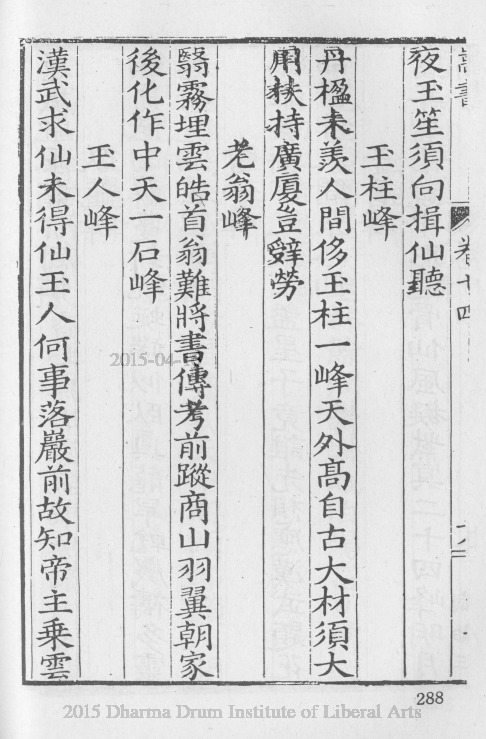 卷十四
夜玉笙須向揖仙聽
玉柱峰
丹楹未羨人間侈玉柱一峰天外髙自古大材須大
用扶持廣厦豈辭勞
老翁峰
翳霧埋雲皓首翁難將書傳考前蹤商山羽翼朝家
後化作中天一石峰
玉人峰
漢武求仙未得仙玉人何事落巖前故知帝主乗雲
2015-04-
288
2015 Dharma Drum Institute of Liberal Arts